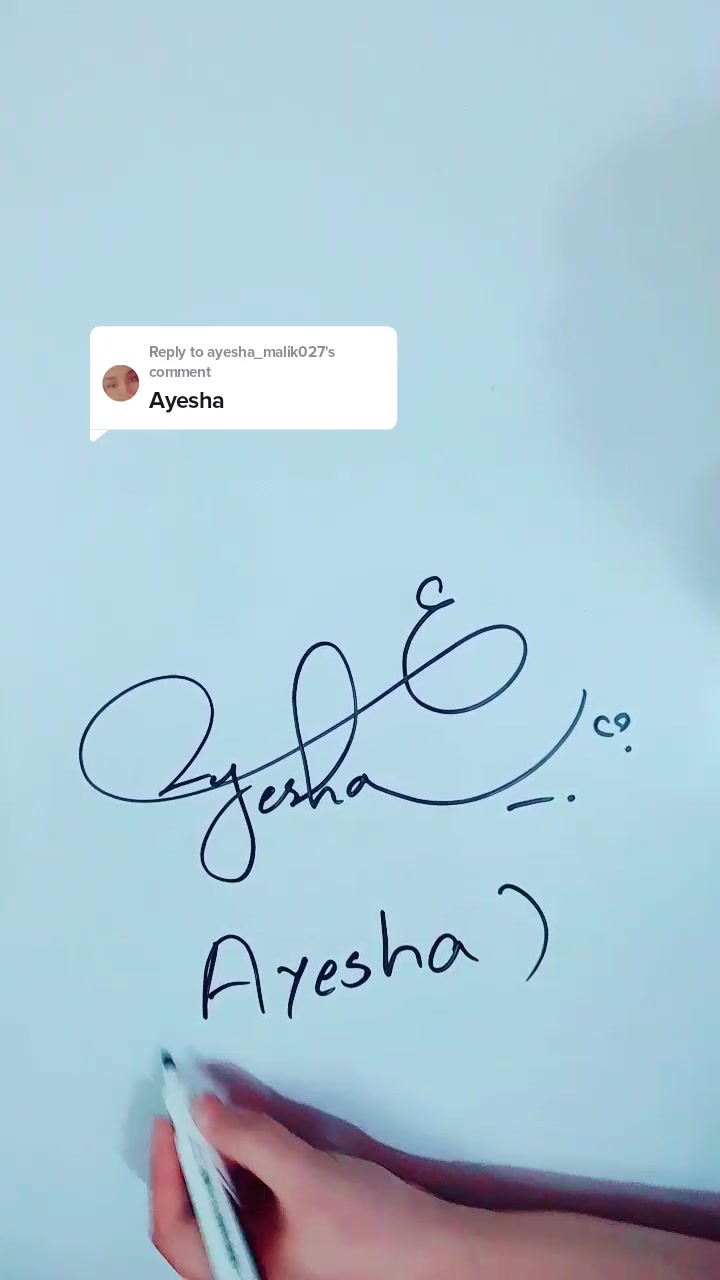 Reply to ayesha_malik027's
comment
Ayesha
Ayesha
Ayesha )